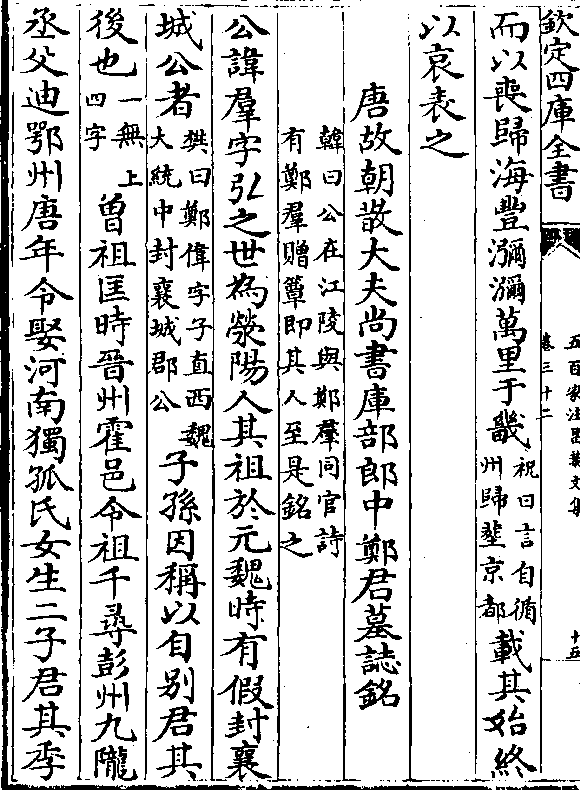 欽定四庫全書
五百家注昌黎文集
卷三十二
十五
而以喪歸海豐瀰瀰萬里于畿祝曰言自循州歸塟京都載其始終
以哀表之
唐故朝散大夫尚書庫部郎中鄭君墓誌銘
韓曰公在江陵與鄭羣同官詩
有鄭羣贈簟即其人至是銘之
公諱羣字弘之世為滎陽人其祖於元魏時有假封襄
城公者樊曰鄭偉字子直西魏大統中封襄城郡公子孫因稱以自别君其
後也一無上四字曾祖匡時晉州霍邑令祖千尋彭州九隴
丞父迪鄂州唐年令娶河南獨孤氏女生二子君其季